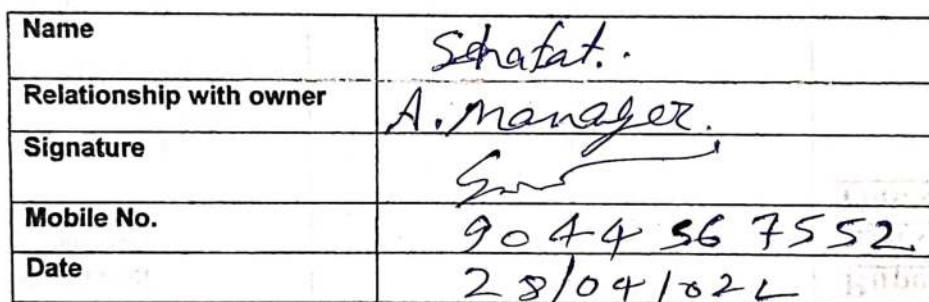 Name Sehafat.
Relationship with owner A. Manager.
Signature
Mobile No. 9044 567552
Date 28/04/